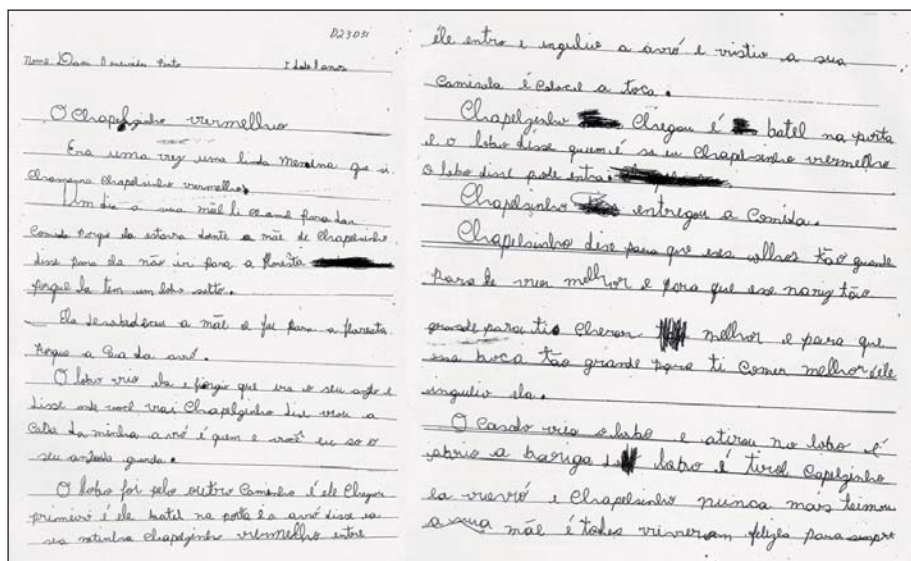 D23051
Nome Dani Pinto Idade 8 anos
O Chapelzinho vermelhio
Era uma vez uma linda menina que si
Chamava Chapelsinho vermelho.
Um dia a sua mãe li chamé para dar
Comida Porque ela estava doente a mãe de Chapelsinho
disse para ela não ir para a floresta
porque la tem um lobo solto.
Ela desobedeceu a mãe e foi para a floresta
a Casa da avó.
O lobo viu ela e figio que era o seu anjo e
disse onde você vai Chapelzinho dise vou a
Casa da minha avó é quem e você eu so o
seu anjo da guarda.
O lobo foi pelo outro Caminho é ele Chegou
primeiro é ele batel na porta la avó disse sa
sua netinha Chapelzinho vermelho entre
éle entro e ingulio a avó e vistio a sua
Camisola é Colocol a toca.
Chapelzinho Chegou é batel na porta
e o lobo disse quem é so eu Chapelsinho vermelho
O lobo disse pode entra.
Chapelsinho entregou a Comida.
Chapelsinho dise para que eses olhos tão grande
Para te ver melhor e para que ese nariz tão
grande para ti Cherar melhor e para que
essa boca tão grande para ti Comer melhor ele
ingulio ela.
O Casdo viu o lobo e atirou no lobo é
abrio a bariga lobo é tirol Capelzinho
la vuvó e Chapelsinho nunca mais teimou
a sua mãe é todos viveram felizes para sempre